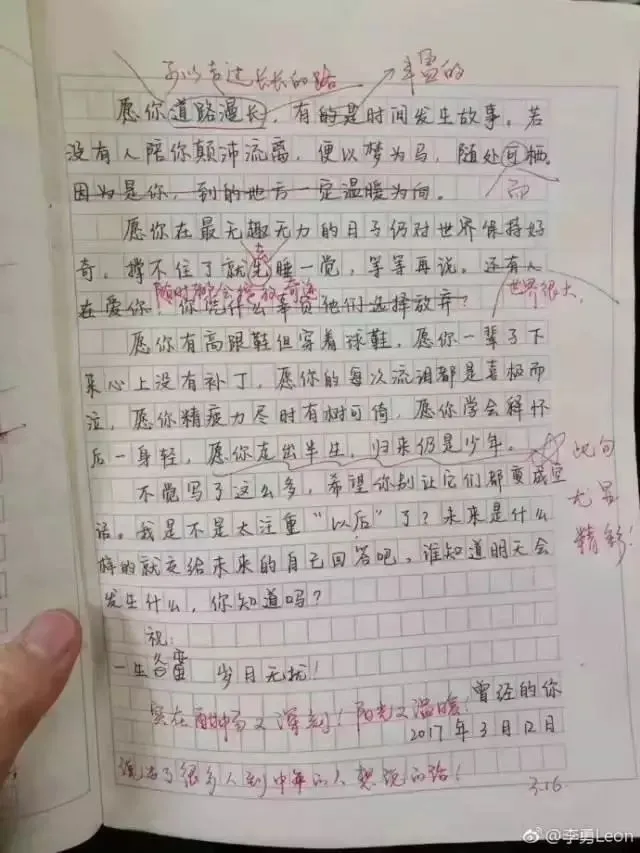 可以走过长长的路
丰富的
愿你道路漫长,有的是时间发生故事。若
没有人陪你颠沛流离,便以梦为马,随处可栖。
因为是你,到的地方一定温暖为向。
而
愿你在最无趣无力的日子仍对世界保持好
奇,撑不住了就先睡一觉,等等再说。还有人
去
随时都会绽放奇迹
世界很大,
在爱你 你凭什么辜负他们选择放弃?
愿你有高跟鞋但穿着球鞋,愿你一辈子下
来心上没有补丁,愿你的每次流泪都是喜极而
泣,愿你精疲力尽时有树可倚,愿你学会释怀
后一身轻,愿你走出半生,归来仍是少年。
此句
尤其
精彩!
不觉写了这么多,希望你别让它们都变成空
话。我是不是太注重“以后”了?未来是什么
样的就交给未来的自己回答吧,谁知道明天会
发生什么,你知道吗?
祝:
一生备蛮 岁月无扰!
曾经的你
实在 又深刻!阳光又温暖!
2017年3月12日
说出了很多人到中年的人想说的话!
3.16
@李勇Leon